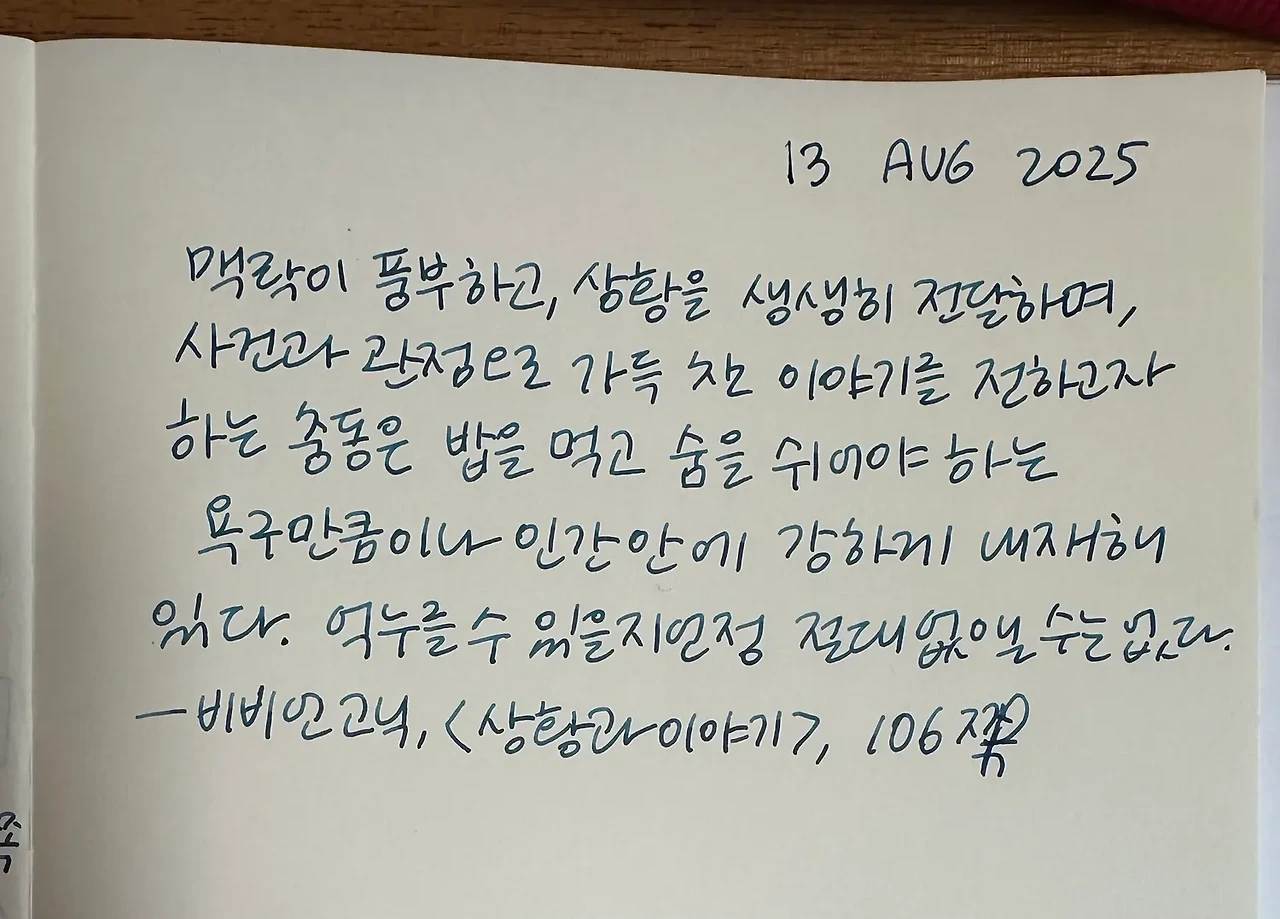 13 AUG 2025
맥락이 풍부하고, 상황을 생생히 전달하며,
사건과 관점으로 가득 찬 이야기를 전하고자
하는 충동은 밥을 먹고 숨을 쉬어야 하는
욕구만큼이나 인간 안에 강하게 내재해
있다. 억누를 수 있을지언정 절대 없앨 수는 없다.
— 비비언 고닉, <상황과 이야기>, 106쪽
쪽